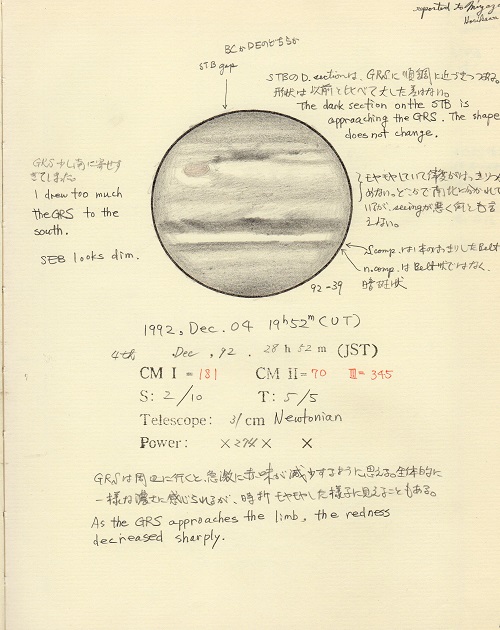 reported to Miyaza
BCかDEのどちらか
STB gap
STBのD. sectionは、GRSに順調に近づきつつある。
形状は以前と比べて大した差はない。
The dark section on the STB is
approaching the GRS. The shape
does not change.
GRS少し南に寄せす
ぎてしまった。
I drew too much
the GRS to the
south.
SEB looks dim.
モヤモヤしていて
めない。どこかで南北に分かれて
いるが、seeingが悪く何とも言
えない。
S.comp.は1本のはっきりしたBelt
n.comp.はBelt状ではなく、
暗斑状
92-39
1992, Dec. 04 19h52m (UT)
4th Dec, 92. 28h 52m (JST)
CM I = 181 CM II = 70 III = 345
S: 2/10 T: 5/5
Telescope: 31cm Newtonian
Power: × × ×
GRSは周辺に行くと、急激に赤味が減少するように思える。全体的に
一様な濃さに感じられるが、時折モヤモヤした様子に見えることもある。
As the GRS approaches the limb, the redness
decreased sharply.